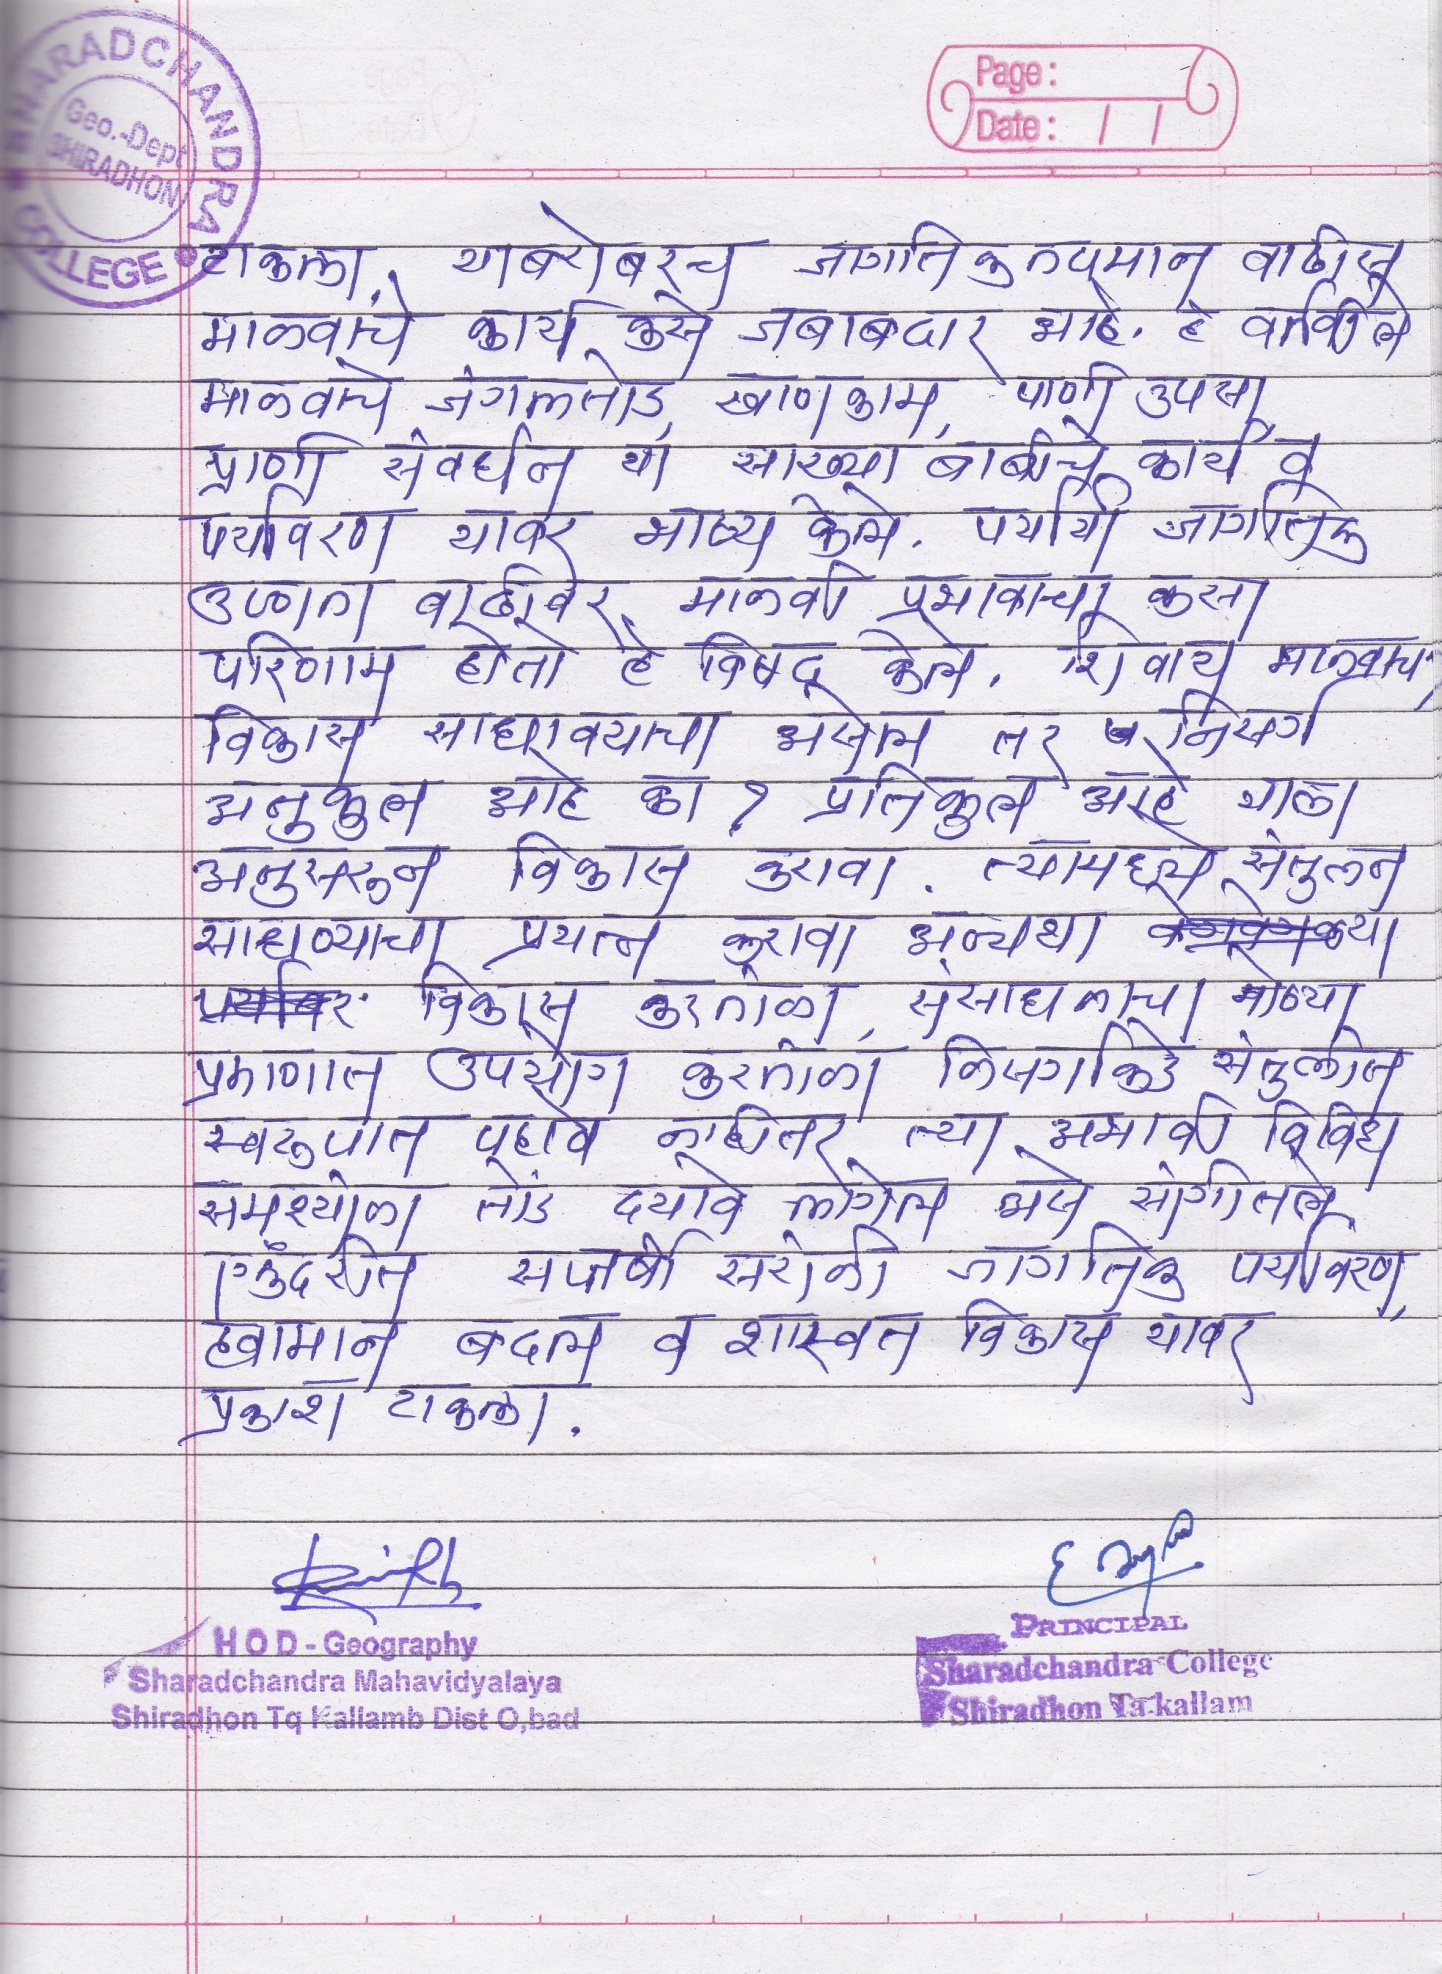 SHARADCHANDRA COLLEGE
Geo.-Dept
SHIRADHON
Page:
Date: / /
टाकला. याबरोबरच जागतिक तापमान वाढीस
मानवाचे कार्य कसे जबाबदार आहे. हे वर्णिले
मानवाचे जंगलतोड, खाणकाम, पाणी उपसा,
प्राणी संवर्धन या सारख्या बाबींचे कार्य व
पर्यावरण यावर भाष्य केले. पर्यायी जागतिक
उष्णता वाढीवर मानवी प्रभावाचा कसा
परिणाम होतो हे विषद केले. शिवाय मानवाचा
विकास साधावयाचा असेल तर निसर्ग
अनुकुल आहे का? प्रतिकुल आहे याला
अनुसरून विकास करावा. त्यामध्ये संतुलन
साधण्याचा प्रयत्न करावा अन्यथा
विकास करताना, संसाधनाचा मोठ्या
प्रमाणात उपयोग करताना निसर्गाकडे संतुलीत
स्वरुपात पहावे नाहीतर त्या अभावी विविध
समश्यांना तोंड दयावे लागेल असे सांगीतले.
एकुंदरीत सप्तर्षी सरांनी जागतिक पर्यावरण,
हवामान बदल व शास्वत विकास यावर
प्रकाश टाकला.
HOD - Geography
Sharadchandra Mahavidyalaya
Shiradhon Tq Kallamb Dist O,bad
PRINCIPAL
Sharadchandra College
Shiradhon Ta.kallam